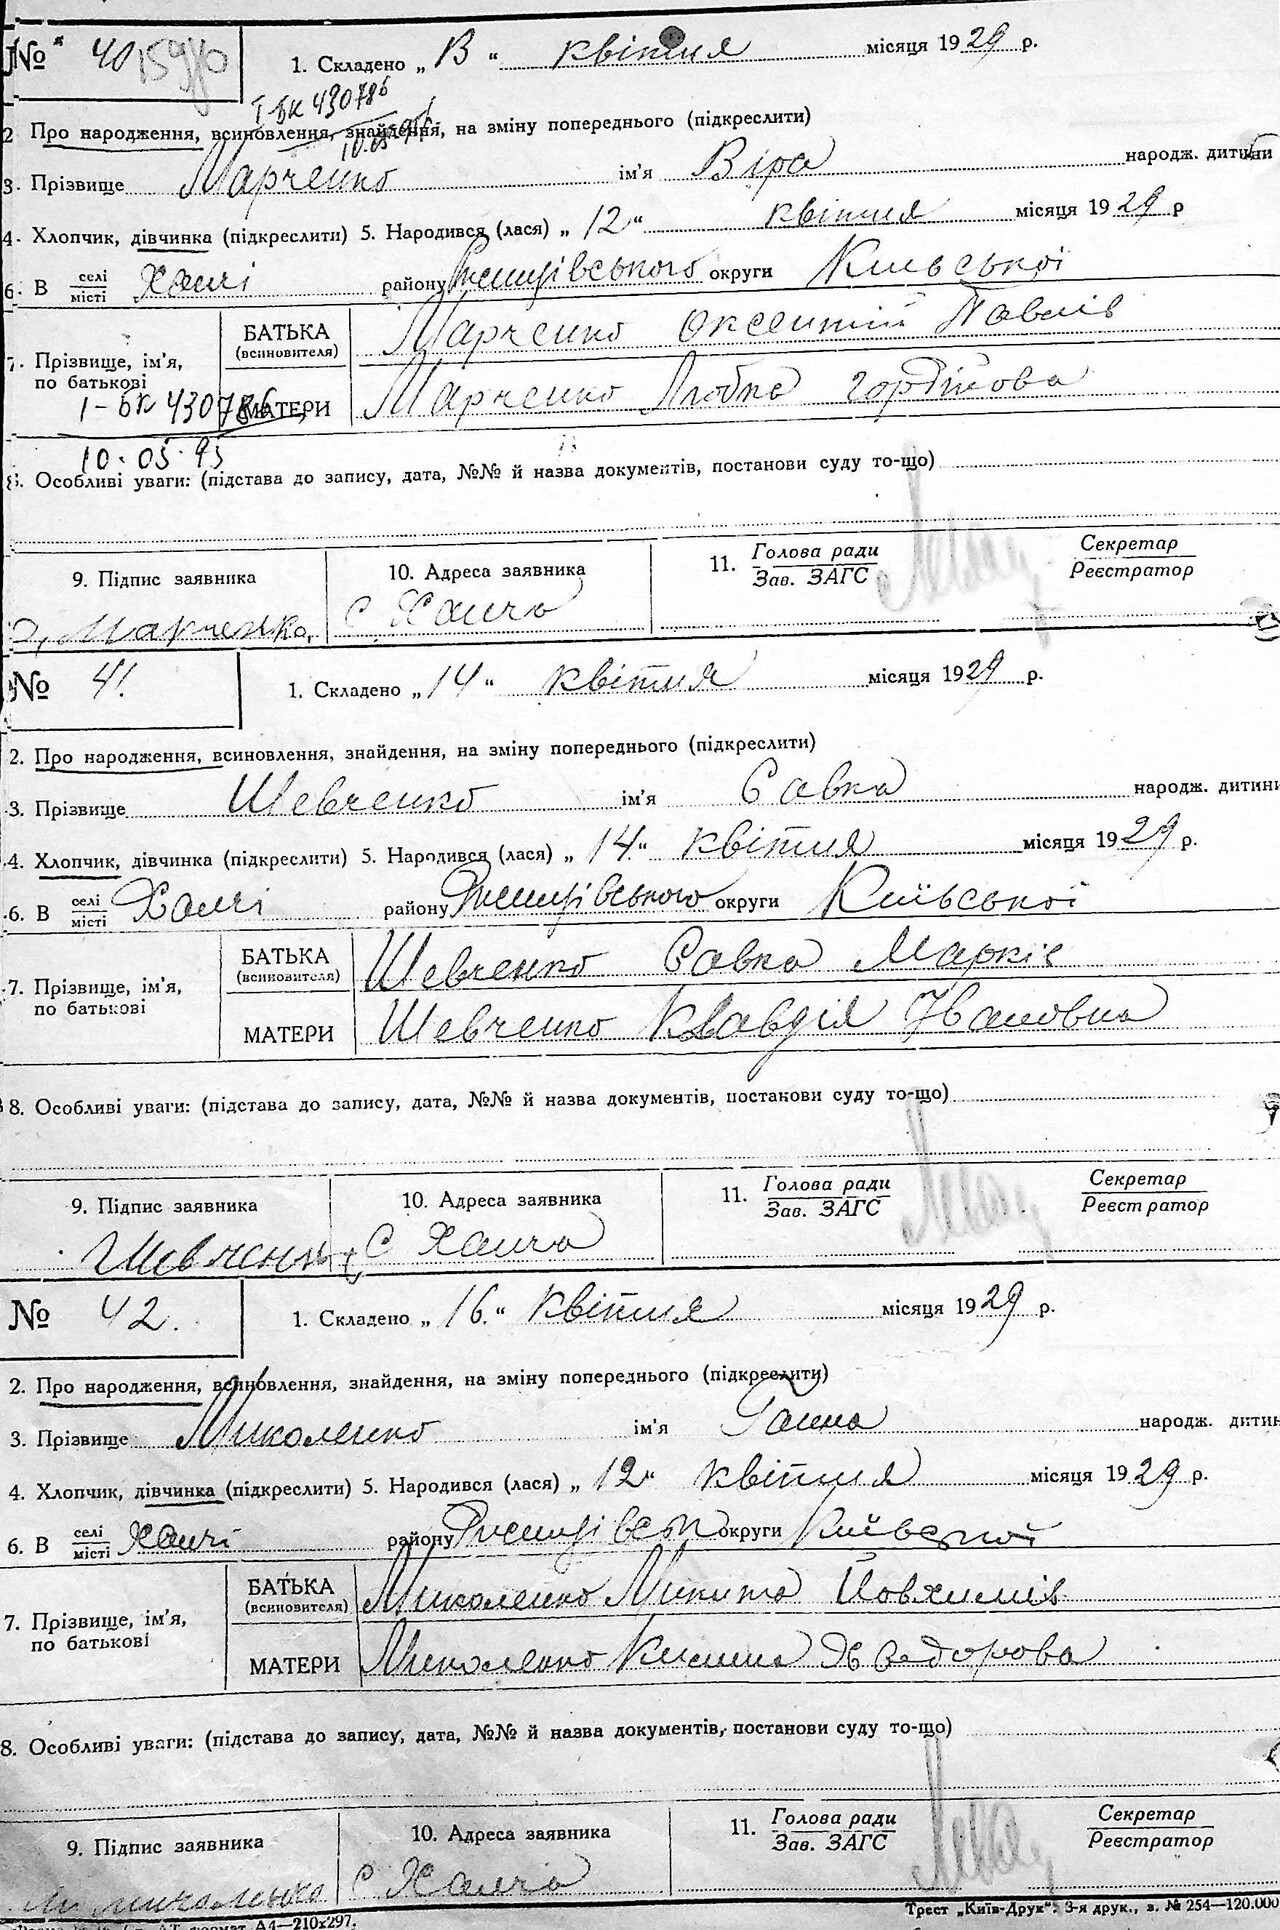 № 40 1. Складено „13“ квітня місяця 1929 р.
І БК 430786
2 Про народження, всиновлення, знайдення, на зміну попереднього (підкреслити)
3. Прізвище Марченко ім'я Віра народж. дитини
4. Хлопчик, дівчинка (підкреслити) 5. Народився (лася) „12“ квітня місяця 1929 р
6. В селі місті Халчі району Ржищівського округи Київської
7. Прізвище, ім'я, по батькові
БАТЬКА (всиновителя) Марченко Оксентій Павлів
МАТЕРИ Марченко Любка Гордійова
І-БК 430786
10.05.95
8. Особливі уваги: (підстава до запису, дата, №№ й назва документів, постанови суду то-що)
9. Підпис заявника 10. Адреса заявника 11. Голова ради Зав. ЗАГС Секретар Реєстратор
Марченко. С Халча
№ 41. 1. Складено „14“ квітня місяця 1929 р.
2. Про народження, всиновлення, знайдення, на зміну попереднього (підкреслити)
3. Прізвище Шевченко ім'я Савка народж. дитини
4. Хлопчик, дівчинка (підкреслити) 5. Народився (лася) „14.“ квітня місяця 1929 р.
6. В селі місті Халчі району Ржищівського округи Київської
7. Прізвище, ім'я, по батькові
БАТЬКА (всиновителя) Шевченко Савка Марків
МАТЕРИ Шевченко Клавдія Івановна
8. Особливі уваги: (підстава до запису, дата, №№ й назва документів, постанови суду то-що)
9. Підпис заявника 10. Адреса заявника 11. Голова ради Зав. ЗАГС Секретар Реєстратор
С Халча
№ 42. 1. Складено „16.“ квітня місяця 1929 р.
2. Про народження, всиновлення, знайдення, на зміну попереднього (підкреслити)
3. Прізвище Миколенко ім'я Ганна народж. дитин
4. Хлопчик, дівчинка (підкреслити) 5. Народився (лася) „12“ квітня місяця 1929 р.
6. В селі місті Халчі району Ржищівськ округи Київської
7. Прізвище, ім'я, по батькові
БАТЬКА (всиновителя) Миколенко Микита Йовхимів
МАТЕРИ Миколенко Килина Хведорова
8. Особливі уваги: (підстава до запису, дата, №№ й назва документів, постанови суду то-що)
9. Підпис заявника 10. Адреса заявника 11. Голова ради Зав. ЗАГС Секретар Реєстратор
М. Миколенко С Халча
Трест „Київ-Друк“. 3-я друк., з. № 254—120.000
формат А4—210х297.